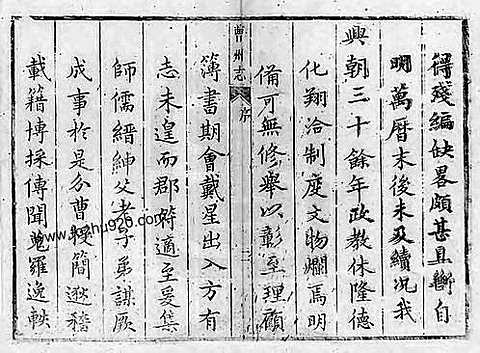 得殘編缺畧頗甚且斷自
明萬曆末後未及續況我
興朝三十餘年政教休隆德
化翔洽制度文物爛焉明
備可無修舉以彰至理顧
曹州志 序
簿書期會戴星出入方有
志未遑而郡 適至爰集
師儒縉紳父老子弟謀厥
成事於是分曹 簡遡稽
載籍博採傳聞蒐羅逸軼